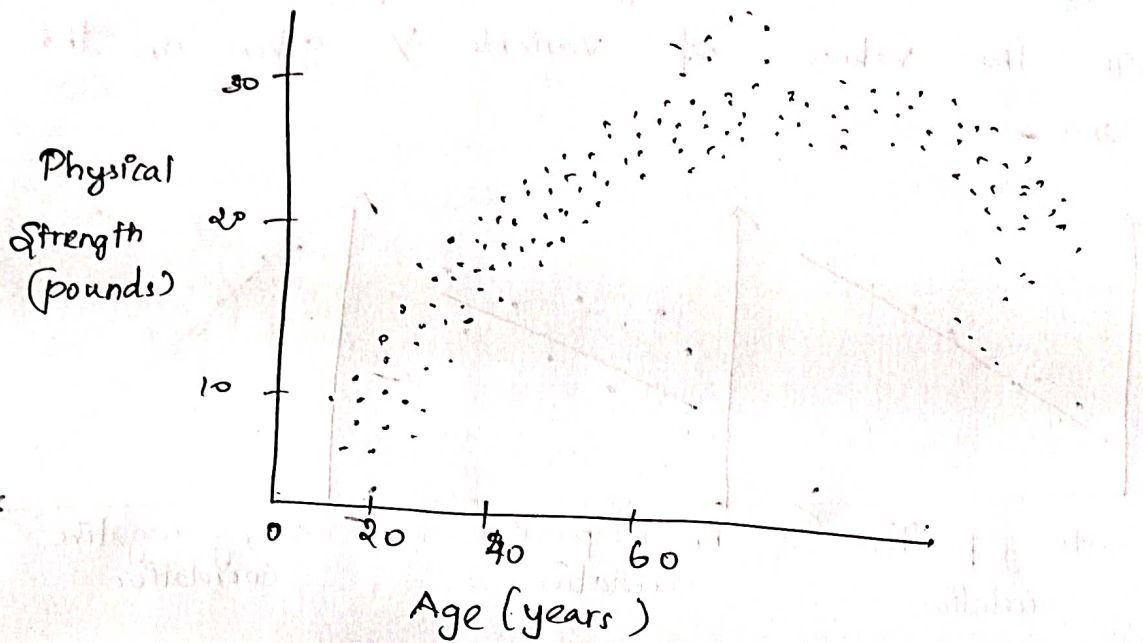 30
Physical
Strength
(pounds)
20
10
0
20
40
60
Age (years)